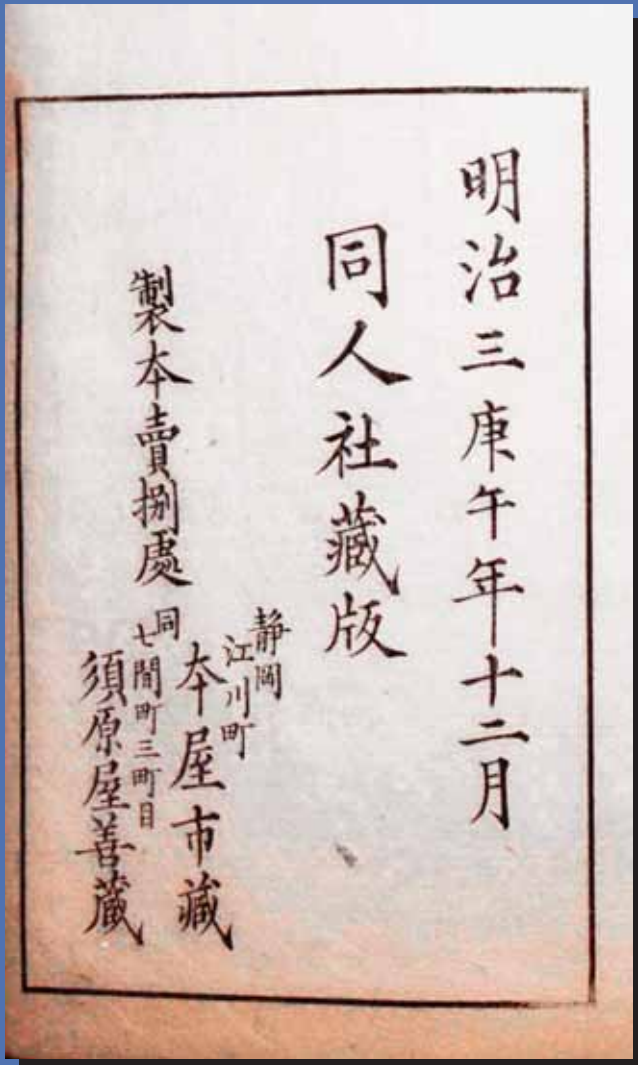 明治三庚午年十二月
同人社藏版
製本賣捌處
静岡
江川町
本屋市藏
同
七間町三町目
須原屋善藏